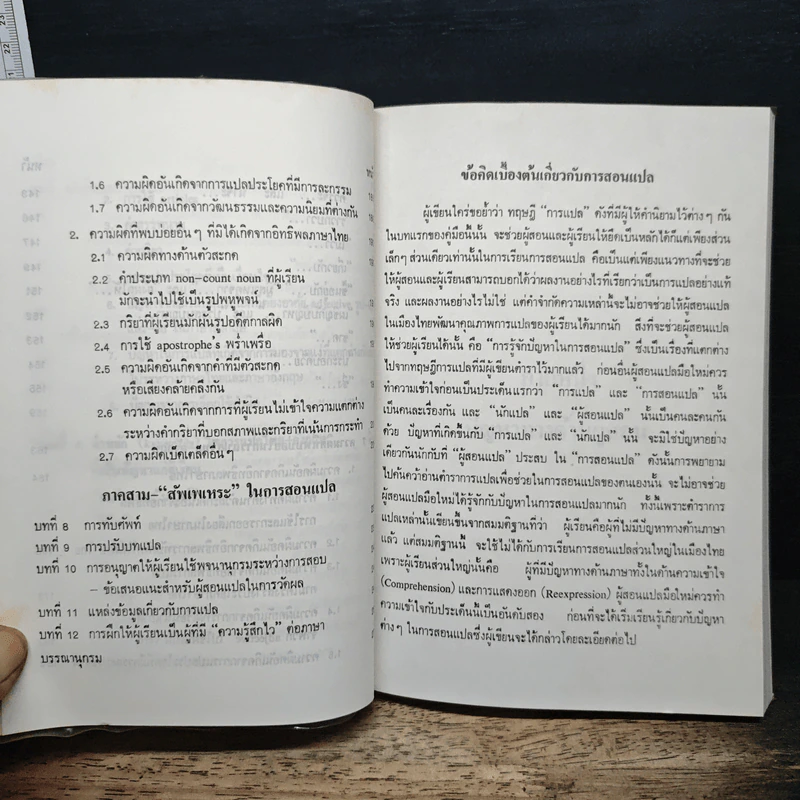 1.6 ความผิดอันเกิดจากการแปลประโยคที่มีการละกรรม
1.7 ความผิดอันเกิดจากวัฒนธรรมและความนิยมที่ต่างกัน
2. ความผิดที่พบบ่อยอื่นๆ ที่มิได้เกิดจากอิทธิพลภาษาไทย
2.1 ความผิดทางด้านตัวสะกด
2.2 คำประเภท non-count noun ที่ผู้เรียน
มักจะนำไปใช้เป็นรูปพหูพจน์
2.3 กริยาที่ผู้เรียนมักผันรูปอดีตกาลผิด
2.4 การใช้ apostrophe's พร่ำเพรื่อ
2.5 ความผิดอันเกิดจากคำที่มีตัวสะกด
หรือเสียงคล้ายคลึงกัน
2.6 ความผิดอันเกิดจากการที่ผู้เรียนไม่เข้าใจความแตกต่าง
ระหว่างคำกริยาที่บอกสภาพและกริยาที่เน้นการกระทำ
2.7 ความผิดเบ็ดเตล็ดอื่นๆ
ภาคสาม–“สัพเพเหระ” ในการสอนแปล
บทที่ 8 การทับศัพท์
บทที่ 9 การปรับบทแปล
บทที่ 10 การอนุญาตให้ผู้เรียนใช้พจนานุกรมระหว่างการสอบ
– ข้อเสนอแนะสำหรับผู้สอนแปลในการวัดผล
บทที่ 11 แหล่งข้อมูลเกี่ยวกับการแปล
บทที่ 12 การฝึกให้ผู้เรียนเป็นผู้ที่มี “ความรู้สึกไว” ต่อภาษา
บรรณานุกรม
ข้อคิดเบื้องต้นเกี่ยวกับการสอนแปล
ผู้เขียนใคร่ขอย้ำว่า ทฤษฎี “การแปล” ดังที่มีผู้ให้คำนิยามไว้ต่างๆ กัน
ในบทแรกของคู่มือนี้นั้น จะช่วยผู้สอนและผู้เรียนให้ยึดเป็นหลักได้ก็แต่เพียงส่วน
เล็กๆ ส่วนเดียวเท่านั้นในการเรียนการสอนแปล คือเป็นแต่เพียงแนวทางที่จะช่วย
ให้ผู้สอนและผู้เรียนสามารถบอกได้ว่าผลงานอย่างไรที่เรียกว่าเป็นการแปลอย่างแท้
จริง และผลงานอย่างไรไม่ใช่ แต่คำจำกัดความเหล่านี้จะไม่อาจช่วยให้ผู้สอนแปล
ในเมืองไทยพัฒนาคุณภาพการแปลของผู้เรียนได้มากนัก สิ่งที่จะช่วยผู้สอนแปล
ให้ช่วยผู้เรียนได้นั้น คือ “การรู้จักปัญหาในการสอนแปล” ซึ่งเป็นเรื่องที่แตกต่าง
ไปจากทฤษฎีการแปลที่มีผู้เขียนตำราไว้มากแล้ว ก่อนอื่นผู้สอนแปลมือใหม่ควร
ทำความเข้าใจก่อนเป็นประเด็นแรกว่า “การแปล” และ “การสอนแปล” นั้น
เป็นคนละเรื่องกัน และ “นักแปล” และ “ผู้สอนแปล” นั้นเป็นคนละคนกัน
ด้วย ปัญหาที่เกิดขึ้นกับ “การแปล” และ “นักแปล” นั้น จะมิใช่ปัญหาอย่าง
เดียวกันนักกับที่ “ผู้สอนแปล” ประสบ ใน “การสอนแปล” ดังนั้นการพยายาม
ไปค้นคว้าอ่านตำราการแปลเพื่อช่วยในการสอนของตนเองนั้น จะไม่อาจช่วย
ผู้สอนแปลมือใหม่ได้รู้จักกับปัญหาในการสอนแปลมากนัก ทั้งนี้เพราะตำราการ
แปลเหล่านั้นเขียนขึ้นจากสมมติฐานที่ว่า ผู้เรียนคือผู้ที่ไม่มีปัญหาทางด้านภาษา
แล้ว แต่สมมติฐานนี้ จะใช้ไม่ได้กับการเรียนการสอนแปลส่วนใหญ่ในเมืองไทย
เพราะผู้เรียนส่วนใหญ่นั้นคือ ผู้ที่มีปัญหาทางด้านภาษาทั้งในด้านความเข้าใจ
(Comprehension) และการแสดงออก (Reexpression) ผู้สอนแปลมือใหม่ควรทำ
ความเข้าใจกับประเด็นนี้เป็นอันดับสอง ก่อนที่จะได้เริ่มเรียนรู้เกี่ยวกับปัญหา
ต่างๆ ในการสอนแปลซึ่งผู้เขียนจะได้กล่าวโดยละเอียดต่อไป